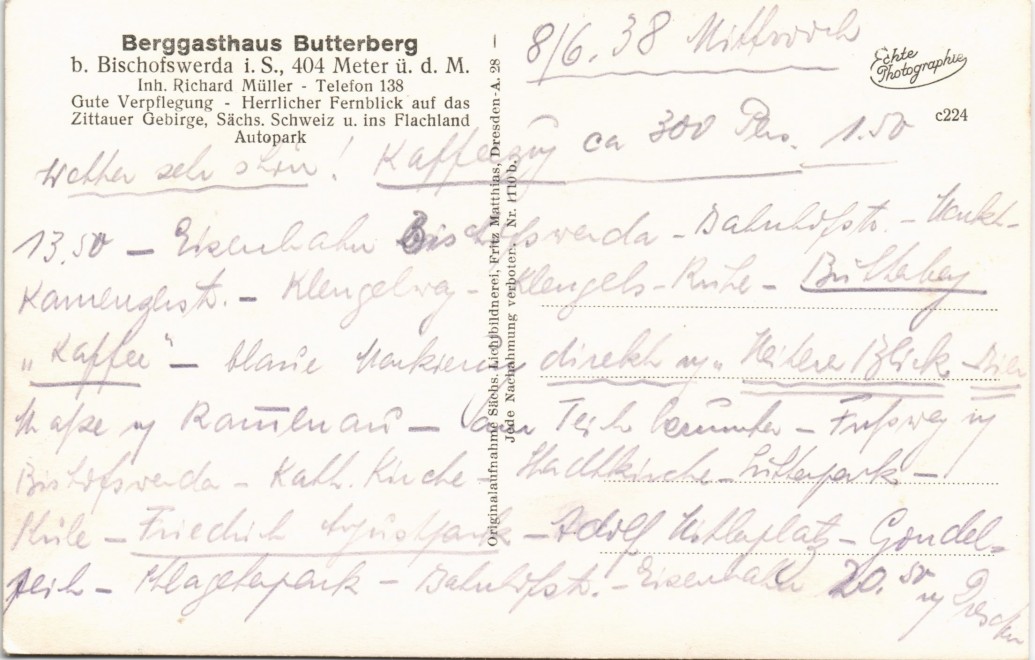 Berggasthaus Butterberg
b. Bischofswerda i. S., 404 Meter ü. d. M.
Inh. Richard Müller - Telefon 138
Gute Verpflegung - Herrlicher Fernblick auf das
Zittauer Gebirge, Sächs. Schweiz u. ins Flachland
Autopark
Echte
Photographie
c224
Originalaufnahme Sächs. Lichtbildnerei, Fritz Matthias, Dresden-A. 28 —
Jede Nachahmung verboten. Nr. 1110 b.
8/6. 38 Mittwoch
Wetter sehr schön! Kaffeezug ca 300 Pers. 1.50
13.50 — Eisenbahn Bischofswerda - Bahnhofstr. - Markt-
Kamenzerstr. — Klengelweg - Klengels-Ruhe - Butterberg
"Kaffee" — blaue Markierung direkt n "Weiterer Blick -
Straße n Rammenau — am Teich - Fußweg n
Bischofswerda - Kath. Kirche - Stadtkirche - Lutherpark —
- Friedrich Augustpark - Adolf Hitlerplatz - Gondel-
teich - Schlageterpark - Bahnhofstr. - Eisenbahn 20.50 n Dresden